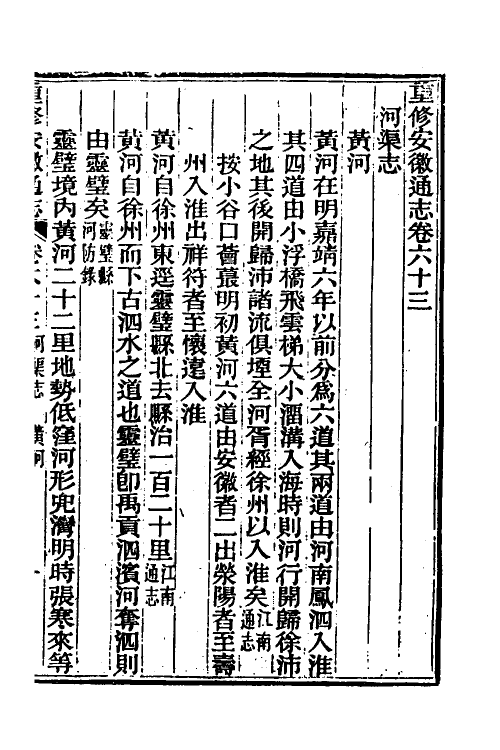 重修安徽通志卷六十三
河渠志
黃河
黃河在明嘉靖六年以前分爲六道其兩道由河南鳳泗入淮
其四道由小浮橋飛雲梯大小溜溝入海時則河行開歸徐沛
之地其後開歸沛諸流俱堙全河胥經徐州以入淮矣江南通志
按小谷口薈蕞明初黃河六道由安徽者二出滎陽者至壽
州入淮出祥符者至懷遠入淮
黃河自徐州東逕靈璧縣北去縣治一百二十里江南通志
黃河自徐州而下古泗水之道也靈璧卽禹貢泗濱河奪泗則
由靈璧矣靈璧縣河防錄
靈璧境內黃河二十二里地勢低窪河形兜灣明時張寒來等
重修安徽通志 卷六十三 河渠志 黃河 一